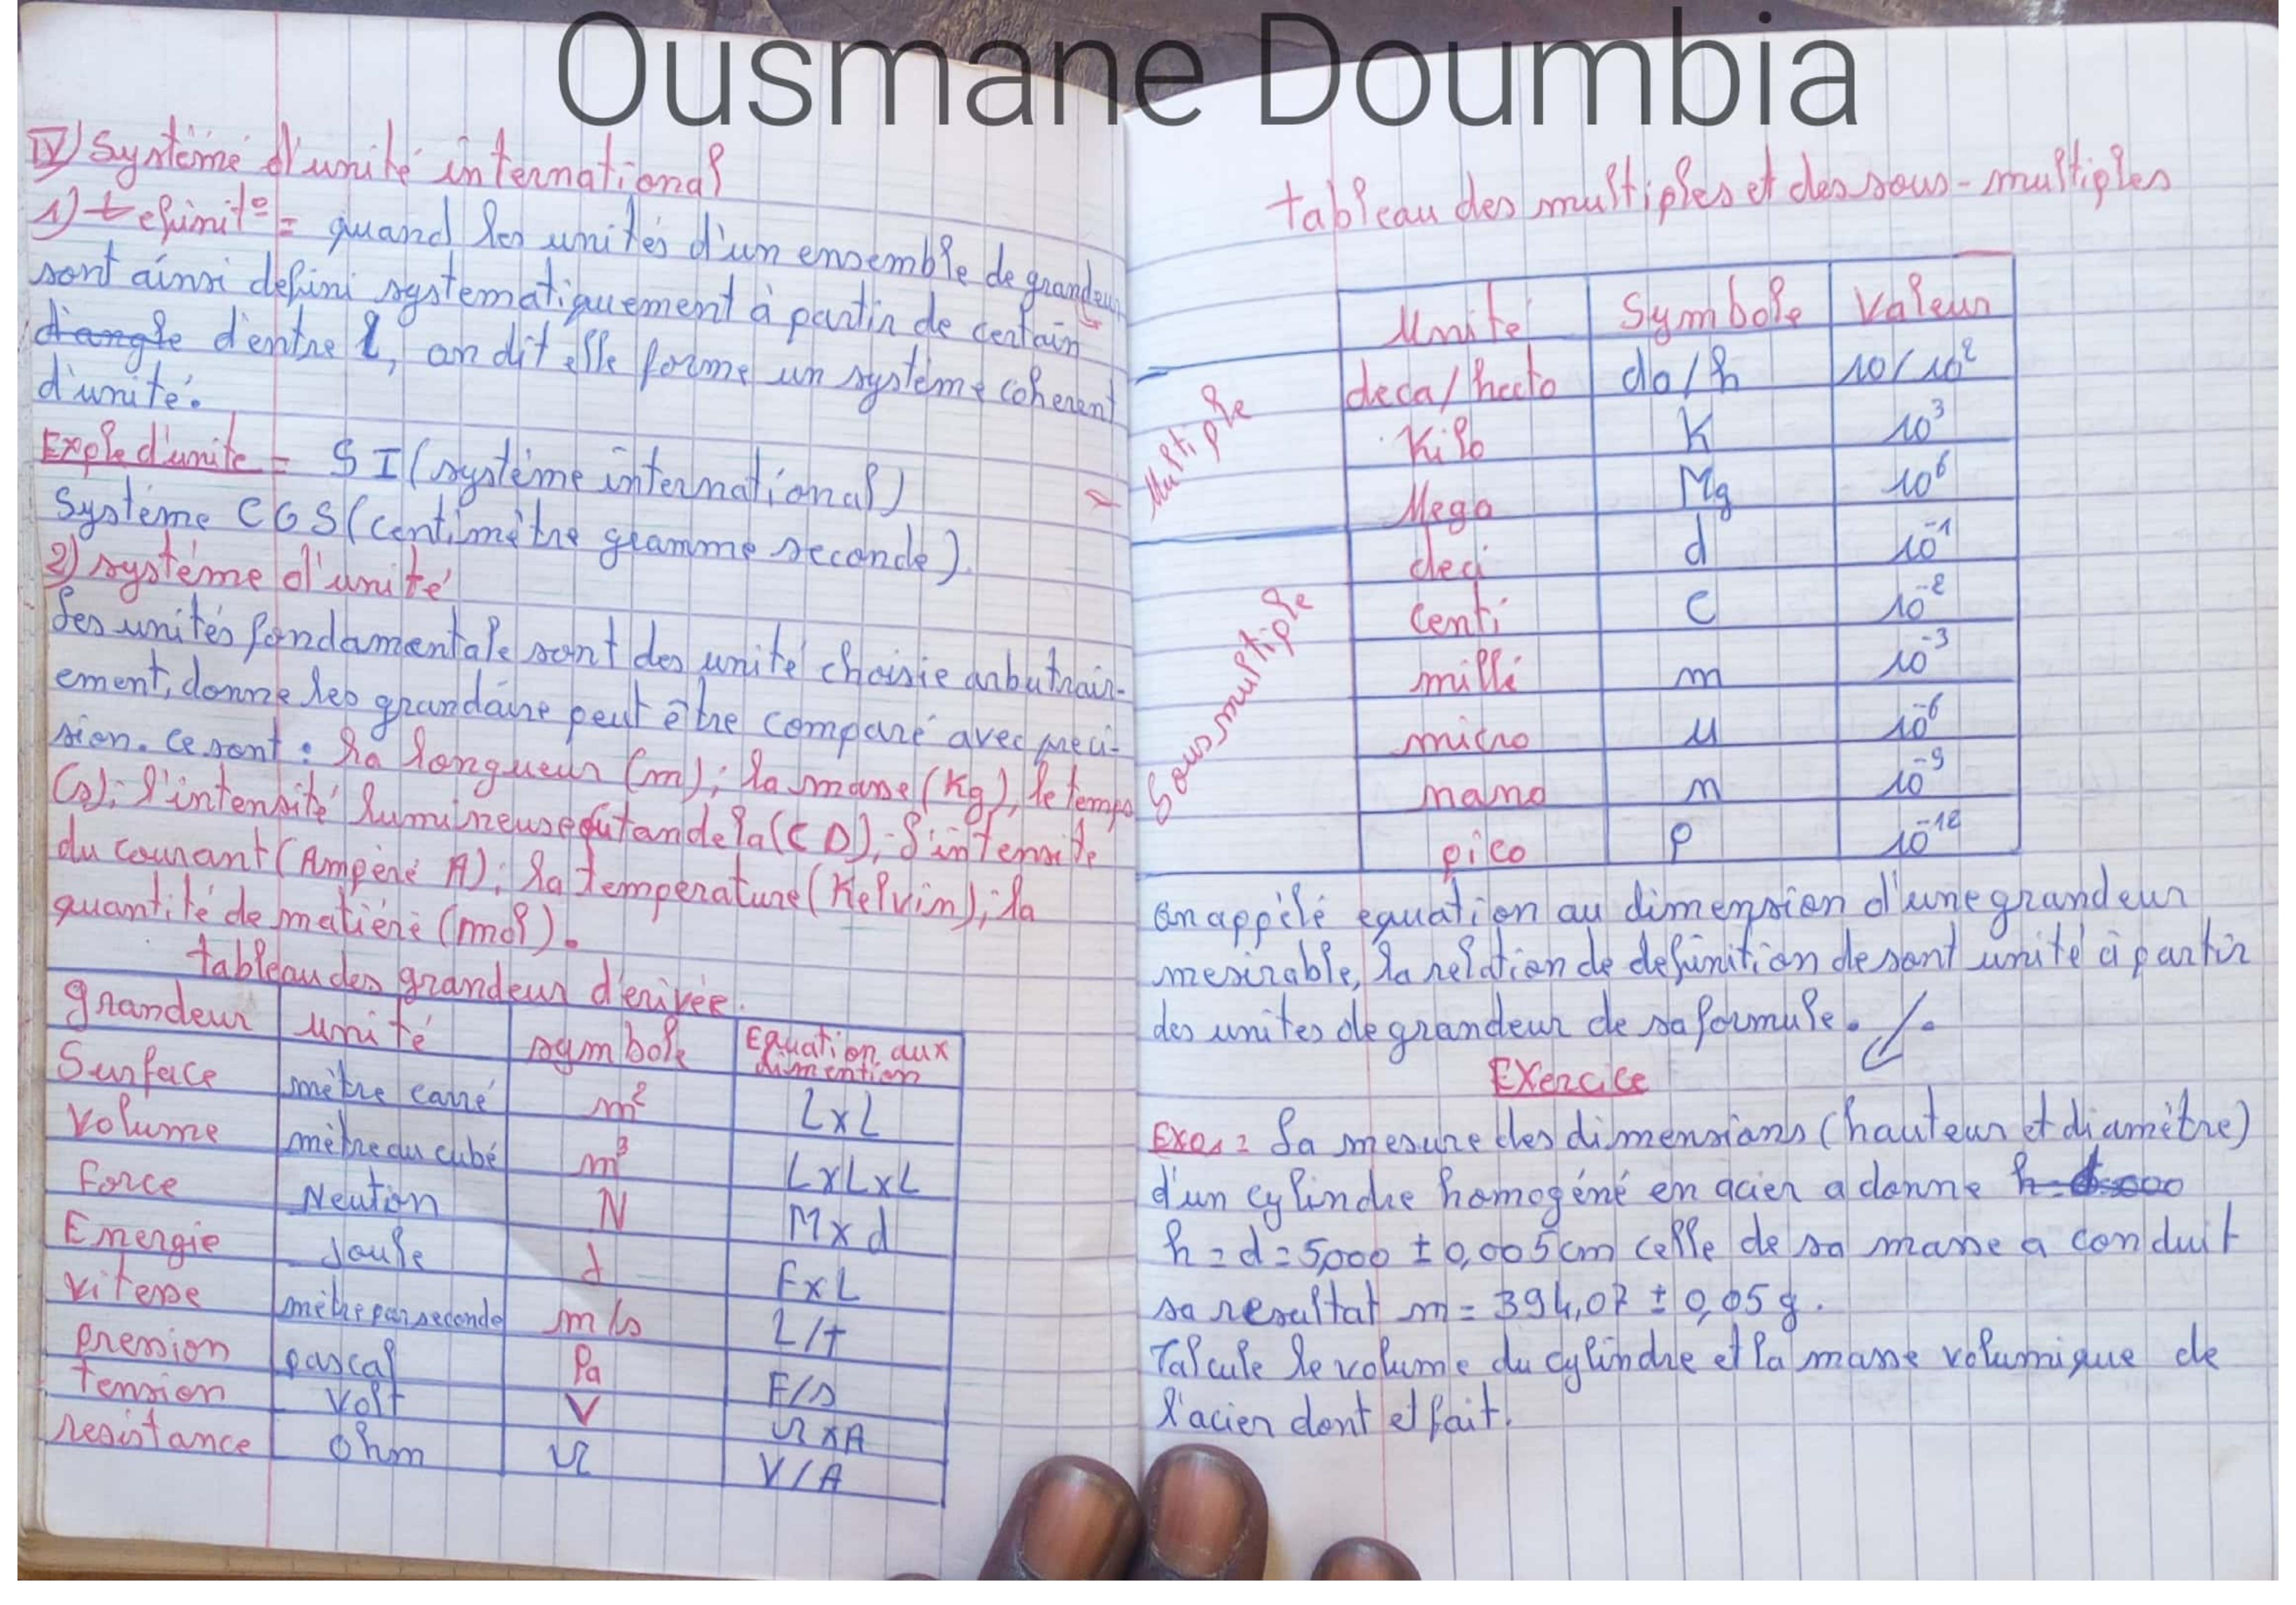 Ousmane Doumbia
IV) Système d'unité international
1) definit° = quand les unités d'un ensemble de grandeur
sont ainsi defini systematiquement à partir de certain
d'angle d'entre l, on dit elle forme un système coherent
d'unité.
Exple d'unite = SI (système international)
Système CGS (centimètre gramme seconde).
2) système d'unité
Les unités fondamentale sont des unité choisie arbutrair-
ement, donne les grandaire peut être comparé avec preci-
sion. Ce sont : la longueur (m); la masse (Kg), le temps
(s); l'intensité lumineuse (CD), l'intensite
du courant (Ampère A); la température (Kelvin); la
quantité de matière (mol).
tableau des grandeur derivée.
grandeur unité symbole Equation aux dimention
Surface mètre carré m² LxL
Volume mètre cubé m³ LxLxL
Force Neution N Mxd
Energie Joule J FxL
vitesse mètre par seconde m/s L/t
pression pascal Pa F/s
tension Volt V ΩxA
resistance ohm Ω V/A
tableau des multiples et des sous-multiples
Unité Symbole Valeur
Multiple
deca/hecto da/h 10/10²
Kilo K 10³
Mega Mg 10⁶
Sous multiple
deci d 10⁻¹
Centi C 10⁻²
milli m 10⁻³
micro µ 10⁻⁶
nano n 10⁻⁹
pico p 10⁻¹²
on appèlé equation au dimension d'une grandeur
mesirable, la relation de definition de sont unité à partir
des unites de grandeur de sa formule. /.
Exercice
Exo1 : La mesure des dimensions (hauteur et diamètre)
d'un cylindre homogéné en acier a donne
h = d = 5,000 ± 0,005cm celle de sa masse a conduit
sa resultat m = 394,07 ± 0,05g.
Calcule le volume du cylindre et la masse volumique de
l'acier dont et fait.